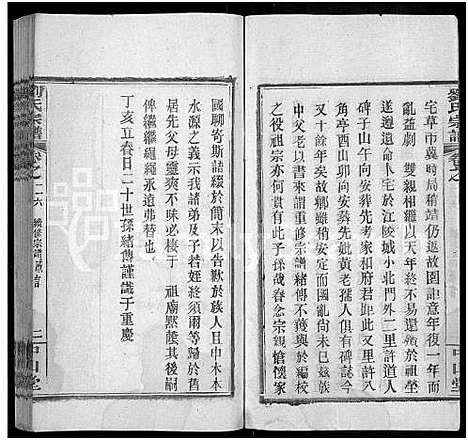 劉氏宗譜
卷之
中山堂
宅草市冀時局稍靖仍返故園詎意年復一年而
亂益劇 雙親相繼以天年終不易還殯於故
遂邀遺命卜宅於江陵城小北門外二里許道人
碑子山午向安葬先考府君距此又里許八
角亭酉山卯向安葬先妣黃老孺人俱有碑誌今
又十餘年矣故鄉雖稍安而大亂尚未已
中父老以書來謂重修宗譜緒傳不可不與
之役祖宗亦何貴有此子孫哉眷念宗親愴懷家
國聊寄斯語綴於簡末以告歉於族人且中木本
水源之義示我諸弟及子若姪終須爾等歸於舊
居先父母靈爽不昧必棲于 祖廟默蔭其後嗣
俾繼繼繩繩永遠弗替也
丁亥立春日二十世孫緒傳謹識于重慶
劉氏宗譜
卷之二六 續修宗譜
二中山堂